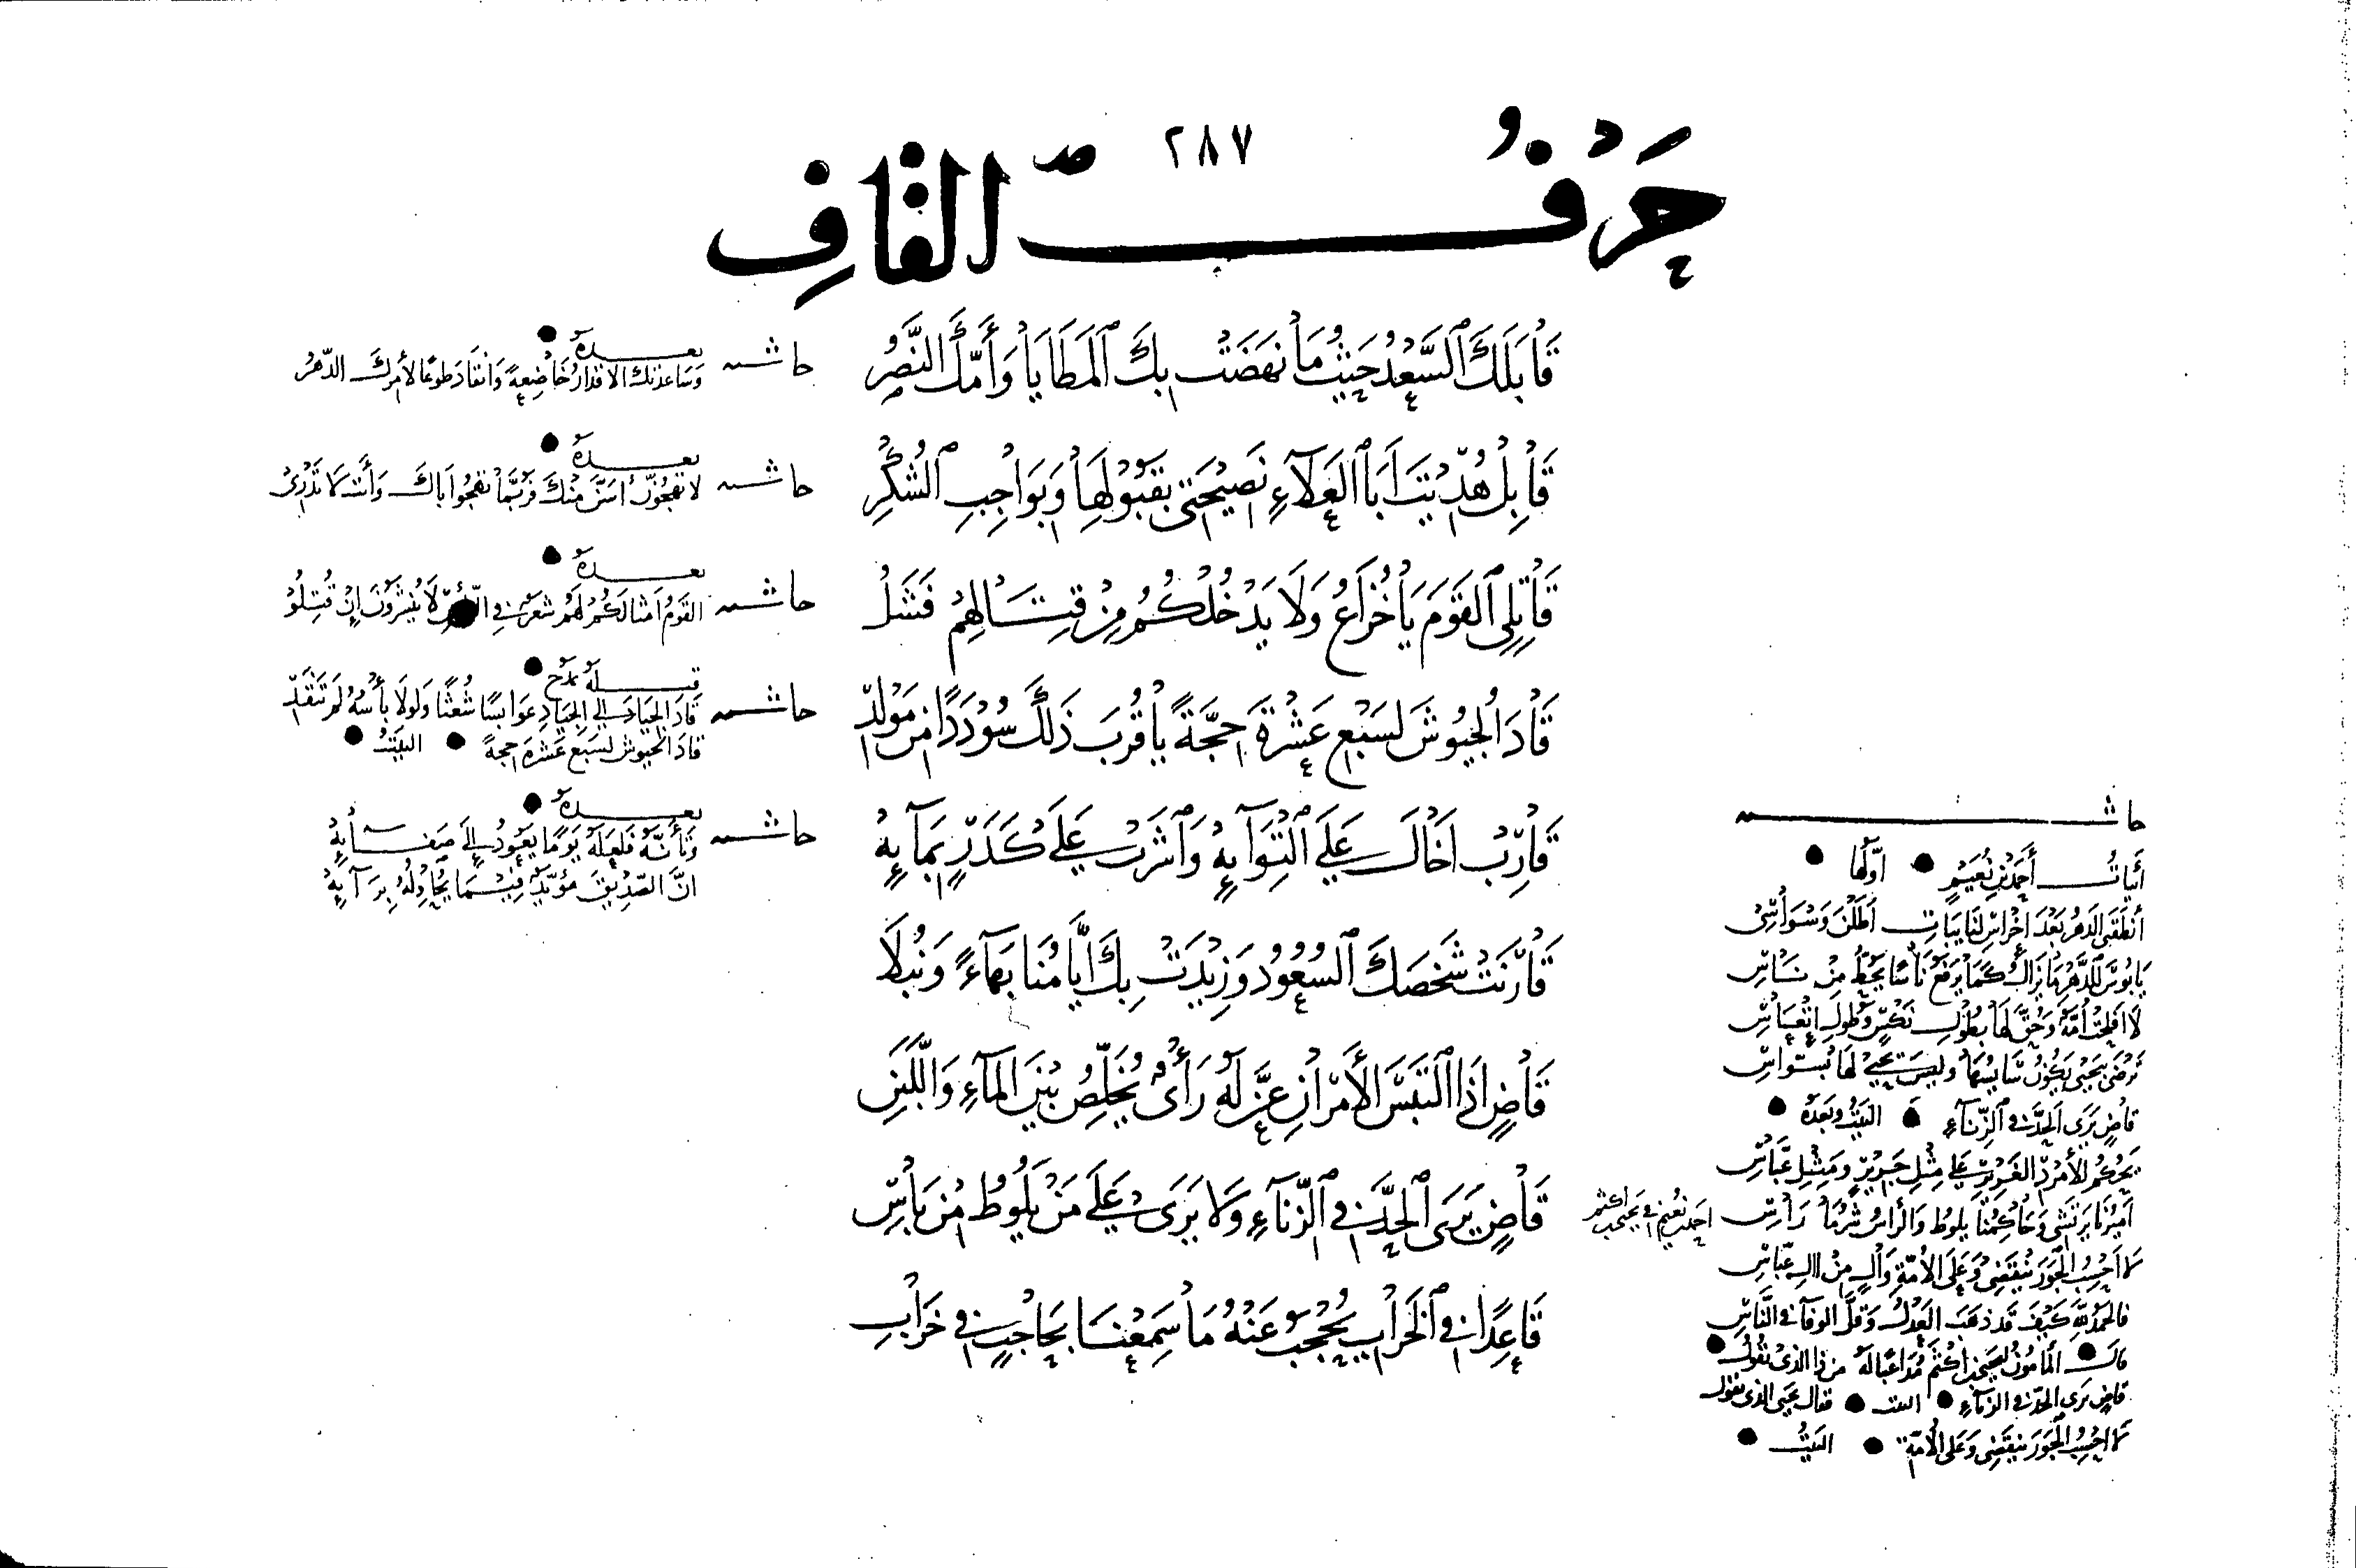 ٢٨٧
حَرْفُ القَافِ
قَابَلَكَ السَّعْدُ حَيْثُ مَا نَهَضَتْ بِكَ الْمَطَايَا وَأَمَّكَ النَّصْرُ
حاشية
بعده
وَسَاعَدَتْكَ الاقدَارُ خَاضِعةً وَانقَادَ طوعًا لأمرِكَ الدّهرُ
قَابِلْ هُدِيْتَ أَبَا الْعَلَآءِ نَصِيْحَتِي بِقَبُوْلِهَا وَبِوَاجِبِ الشُكْرِ
حاشية
بعده
لا تَهجُوَنَّ أسَنَّ مِنْكَ فَرُبَّمَا تَهجُوا أبَاكَ وَأَنتَ لَا تَدْرِىْ
قَاتِلِي الْقَوْمَ يَا خُزَاعُ وَلَا يَدْخُلْكُمُ مِنْ قِتَالِهِمْ فَشَلُ
حاشية
بعده
القَومُ أمْثَالُكُمْ لَهُم شَعَرٌ فِي الرَّأسِ لَا يُنشَرُونَ إِنْ قُتِلُوْ
قَادَ الْجُيُوشَ لِسَبْعِ عَشْرَةَ حِجَّةً يَا قُرْبَ ذَلِكَ سُوْدَدًا مِنْ مَوْلِدِ
حاشية
قبله
قَادَ الجِيَادَ إِلَى الجِيَادِ عَوَابِسًا شُعْثًا وَلَولَا بَأْسُهُ لَم تَنْقَدِ
قادَ الجيوش لسَبع عَشْرَة حجةً البَيْتُ
قَارِبْ أَخَاكَ عَلَى الْتِوَآئِهِ وَاشْرَبْ عَلَى كَدَرٍ بِمَآئِهِ
حاشية
بعده
وَتَأَنَّهُ فَلَعَلَّهُ يَوْمًا يَعُوْدُ إِلَى صَفَائِهِ
انَّ الصَّدِيْقَ مُؤَيَّدٌ فِيْمَا يُحَاوِلُهُ بِرَآيِهِ
قَارَنَتْ شَخْصَكَ السُعُوْدُ وَزِيْدَتْ بِكَ أَيَّامُنَا بَهَآءً وَنُبْلَا
قَاضٍ اذَا الْتَبَسَ الأَمْرَانِ عَزَّ لَهُ رَأْىٌ يُخَلِّصُ بَيْنَ الْمَآءِ وَاللَّبَنِ
قَاضٍ يَرَى الْحَدَّ فِي الزِّنَآءِ وَلَا يَرَى عَلَى مَنْ يَلُوْطُ مِنْ بَأْسِ
احمد بن نعيم في يحيى بن اكثم
قَاعِدًا فِي الْخَرَابِ يُحْجَبُ عَنْهُ مَا سَمِعْنَا بِحَاجِبٍ فِي خَرَابِ
حاشية
أَبيَاتُ أَحْمَدَ بنِ نُعَيْمٍ أوَّلُهَا
أنطَقَنِي الدَّهرُ بَعْدَ اخْرَاسِ لِنَايبَاتٍ أَطَلْنَ وَسْوَاسِىْ
يَا بُوْسَ لِلدَّهْرِ مَا يَزَالُ كَمَا يَرْفَعُ نَاسًا يَحُطُّ مِنْ نَاسِ
لَا أَفْلَحَتْ أمَّةٌ وَحُقَّ لَهَا بِطُولِ نَكْسٍ وَطُولِ اتْعَاسِ
تَرْضَى بِيَحْيَى يَكُوْنُ سَايسَهَا وَلَيْسَ يَحْيَى لَهَا بِسَوَّاسِ
قاضٍ يَرَى الحَدَّ فِي الزِّنَآءِ البَيْتُ وَبَعْدَهُ
يَحْكُمُ لِلأَمْرَدِ الغَرِيْرِ عَلَى مِثْلِ جَرِيْرٍ وَمِثْلِ عَبَّاسِ
أَمِيْرُنَا يَرْتَشِي وَحَاكِمُنَا يَلُوطُ وَالرَّاسُ شَرُّ مَا رَاسِ
لَا احْسِبُ الجَوْرَ يَنْقَضِى وَعَلَى الأُمَّةِ وَالٍ مِنْ الِ عَبَّاسِ
فالحَمْدُ لِلَّهِ كَيْفَ قَد ذهَبَ العَدْلُ وَقَلَّ الوفَآ فِي النَّاسِ
قالَ المَامُونُ ليَحيَى بن اكثم مُدَاعبًا لَهُ من ذا الذى يَقُولُ
قاضٍ يَرَى الحَدَّ في الزنآءِ البيت فقال يحيى الذى يقول
لَا احْسِبُ الجَوْرَ يَنقَضِى وَعَلى الأُمَّة البَيْتُ